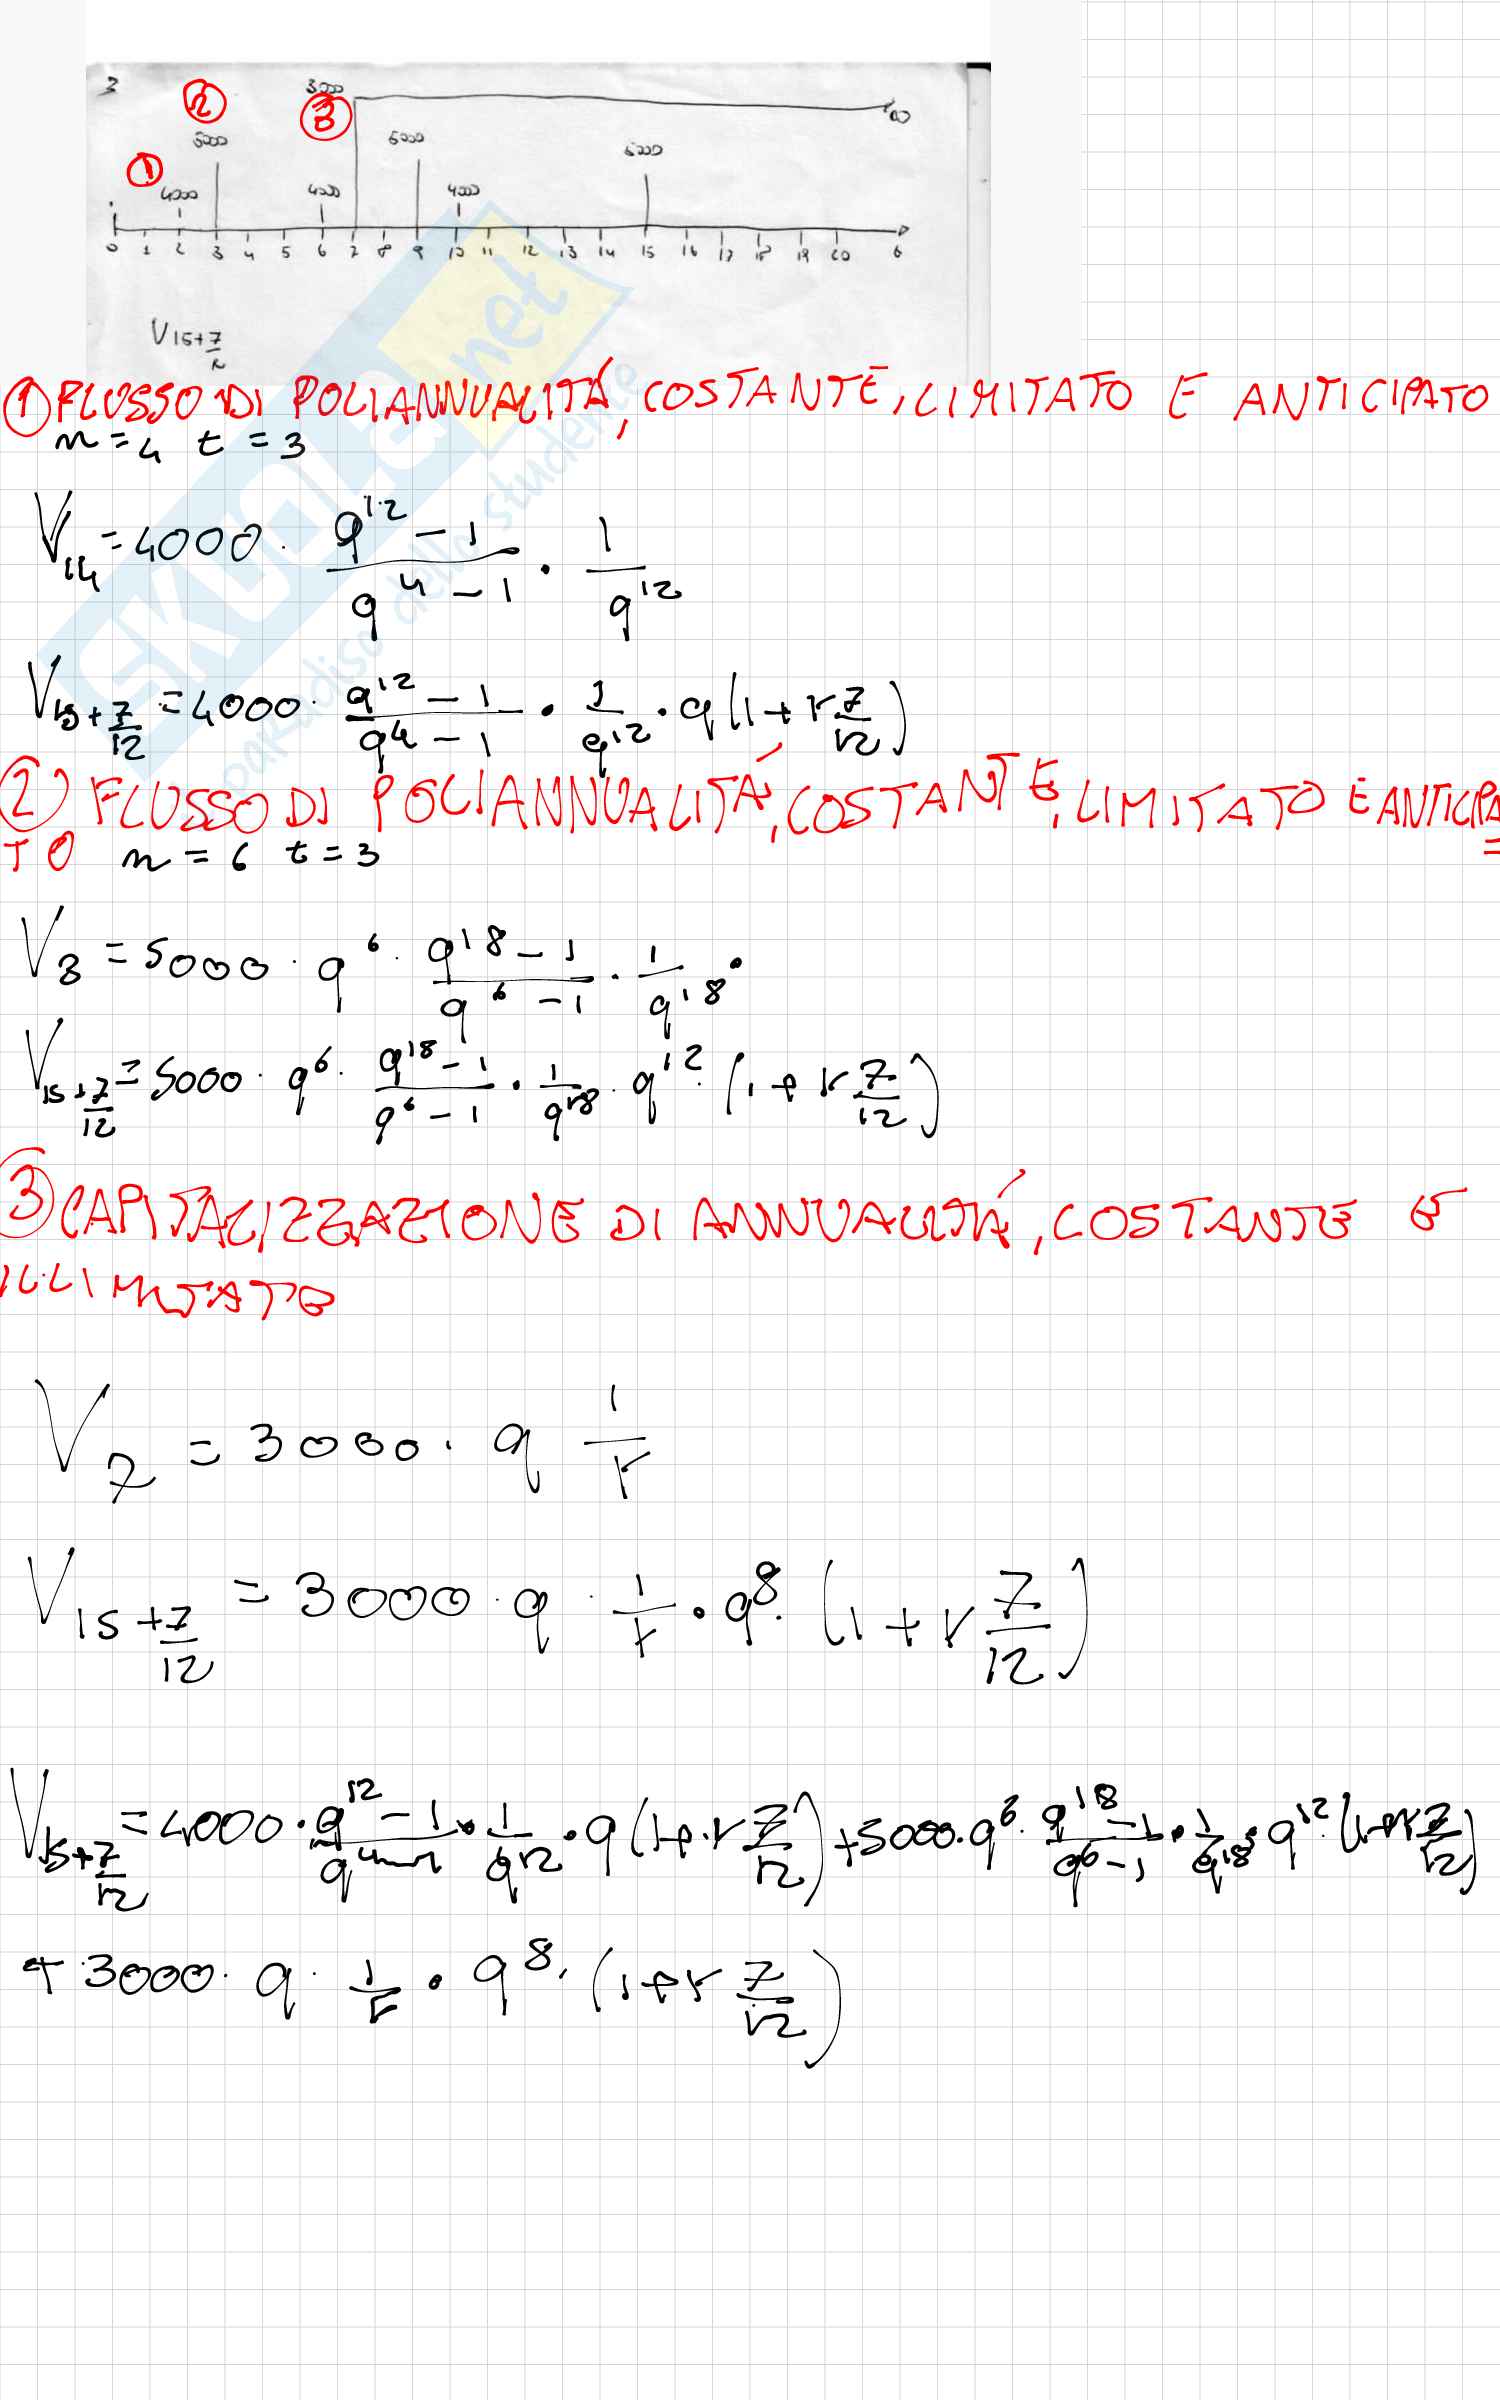 3 2 3000
3
∞
5000 5000 5000
1
4000 4000 4000
0 1 2 3 4 5 6 7 8 9 10 11 12 13 14 15 16 17 18 19 20
V15+7/12
1 FLUSSO DI POLIANNUALITÁ, COSTANTE, LIMITATO E ANTICIPATO
n=4 t=3
V14 = 4000 · (q^12 - 1)/(q^4 - 1) · 1/q^12
V15+7/12 = 4000 · (q^12 - 1)/(q^4 - 1) · 1/q^12 · q(1+r 7/12)
2 FLUSSO DI POLIANNUALITÁ, COSTANTE, LIMITATO E ANTICIPA=
TO n=6 t=3
V3 = 5000 · q^6 · (q^18 - 1)/(q^6 - 1) · 1/q^18 ·
V15+7/12 = 5000 · q^6 · (q^18 - 1)/(q^6 - 1) · 1/q^18 · q^12 · (1+r 7/12)
3 CAPITALIZZAZIONE DI ANNUALITÁ, COSTANTE E
ILLIMITATO
V7 = 3000 · q 1/r
V15+7/12 = 3000 · q · 1/r · q^8 · (1+r 7/12)
V15+7/12 = 4000 · (q^12 - 1)/(q^4 - 1) · 1/q^12 · q(1+r 7/12) + 5000 · q^6 · (q^18 - 1)/(q^6 - 1) · 1/q^18 · q^12 · (1+r 7/12)
+ 3000 · q · 1/r · q^8 · (1+r 7/12)
SKUOLA.net
paradiso dello studente